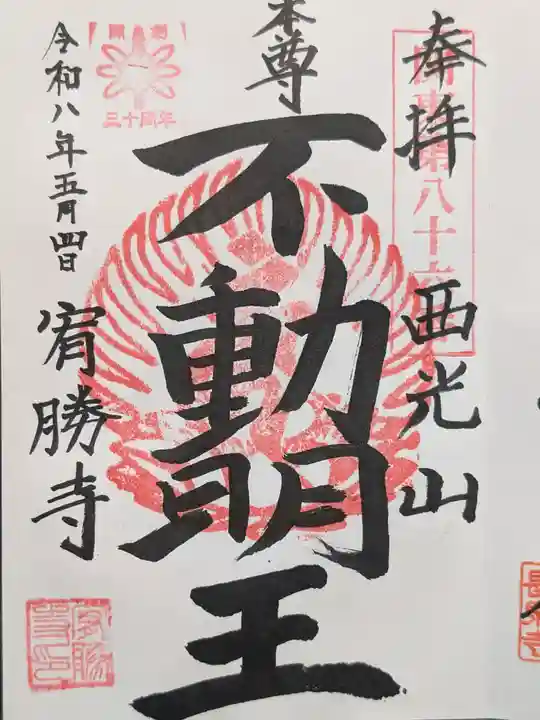 奉拝
西光山
本尊
不動明王
令和八年五月四日
宥勝寺
開創
三十周年